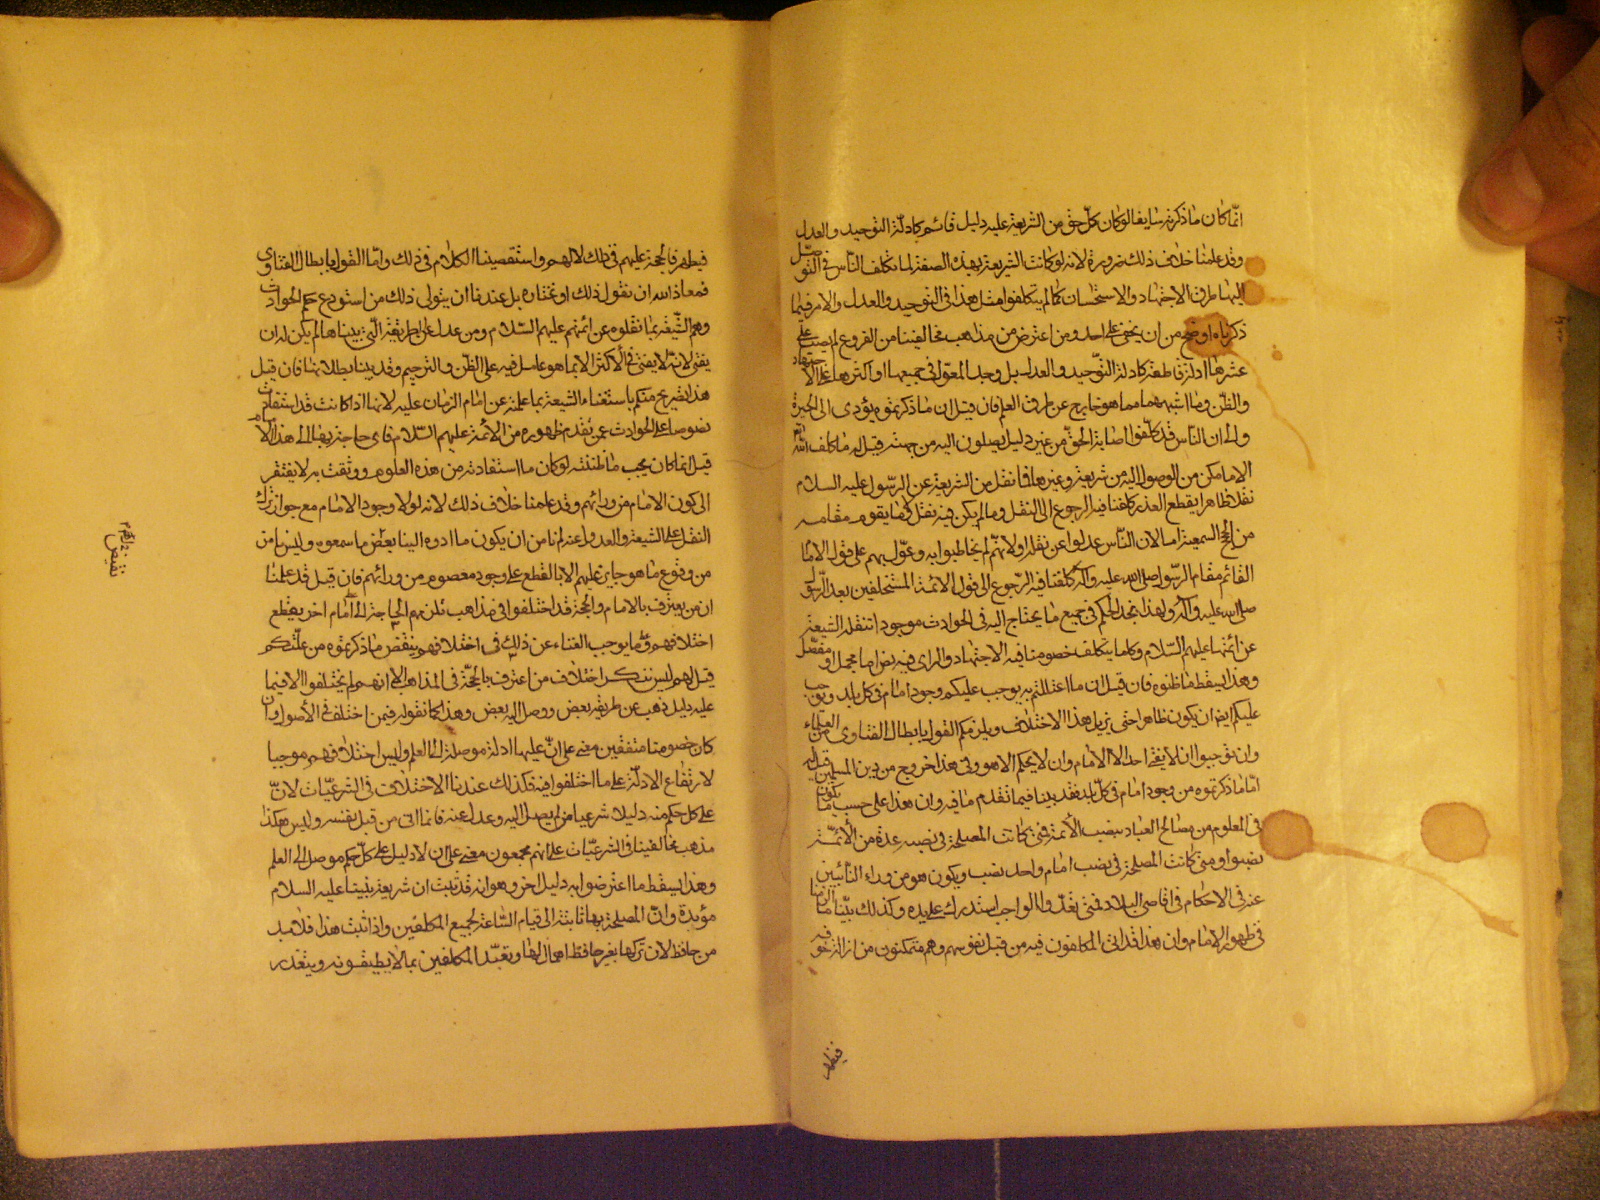 انما كان ما ذكرته سايغا لو كان كل حق من الشريعة عليه دليل قائم كادلة التوحيد والعدل
وقد علمنا خلاف ذلك ضرورة لانه لو كانت الشريعة بهذه الصفة لما تكلف الناس في التوصل
اليها طرق الاجتهاد والاستحسان كما لم يتكلفوا مثل هذا في التوحيد والعدل والامر فيما
ذكرناه اوضح من ان يخفى على احد ومن اعترض من مذاهب مخالفينا من الفروع لم يصب على
عشرها ادلة قاطعة كادلة التوحيد والعدل بل وجد المعول في جميعها او اكثرها على الاجتهاد
والظن وما اشبههما مما هو خارج عن طرق العلم فان قيل ان ما ذكرتموه يؤدى الى الحيرة
والى ان الناس قد كلفوا اصابة الحق من غير دليل يصلون اليه من جهته قيل له ما كلف الله
الا ما مكن من الوصول اليه من شريعة وغيرها فما نقل من الشريعة عن الرسول عليه السلام
نقلا ظاهرا يقطع العذر كلفنا فيه الرجوع الى النقل وما لم يكن فيه نقل ولا ما يقوم مقامه
من الحجج السمعية اما لان الناس عدلوا عن نقله او لانهم لم يخاطبوا به وعول بهم على قول الامام
القائم مقام الرسول صلى الله عليه وآله كلفنا فيه الرجوع الى قول الائمة المستخلفين بعد الرسول
صلى الله عليه وآله ولهذا نجد الحكم في جميع ما يحتاج اليه في الحوادث موجودا تنقله الشيعة
عن ائمتها عليهم السلام وكلما يتكلف خصومنا فيه الاجتهاد والراى فيه نص اما مجمل او مفصل
وهذا يسقط ما ظنوه فان قيل ان ما اعتللتم به يوجب عليكم وجود امام في كل بلد ويوجب
عليكم ايضا ان يكون ظاهرا حتى يزيل هذا الاختلاف ويلزمكم القول بابطال الفتاوى من العلماء
وان توجبوا ان لا يفتى احد الا الامام وان لا يحكم الا هو وفي هذا خروج من دين المسلمين قيل له
اما ما ذكرتموه من وجود امام في كل بلد فقد بينا فيما تقدم ما فيه وان هذا على حسب ما يكون
في المعلوم من مصالح العباد بنصب الأئمة فمتى كانت المصلحة في نصب عدة من الأئمة
نصبوا ومتى كانت المصلحة في نصب امام واحد نصب ويكون هو من وراء النائبين
عنه في الاحكام في اقاصى البلاد فمتى تعدوا الواجب استدرك عليه وكذلك بينا ما الزمنا
في ظهور الامام وان هذا قد اتى المكلفون فيه من قبل نفوسهم وهم متمكنون من ازالة خوفه
فيظهر
فيظهر فالحجة عليهم في ذلك لا لهم واستقصينا الكلام في ذلك واما القول بابطال الفتاوى
فمعاذ الله ان نقول ذلك او نختاره بل عندنا ان يتولى ذلك من استودع حكم الحوادث
وهم الشيعة بما نقلوه عن ائمتهم عليهم السلام ومن عدل عن الطريقة التى بيناها لم يكن له ان
يفتى لانه لا يفتى في الأكثر الا بما هو عامل فيه على الظن والترجيم وقد بينا بطلانهما فان قيل
هذا تصريح منكم باستغناء الشيعة بما علمته عن امام الزمان عليه لانها اذا كانت قد استفادت
نصوصا على الحوادث عمن تقدم ظهوره من الأئمة عليهم السلام فاى حاجة بها الى هذا الامام
قيل انما كان يجب ما ظننته لو كان ما استفادته من هذه العلوم ووثقت به لا يفتقر
الى كون الامام من ورائهم وقد علمنا خلاف ذلك لانه لولا وجود الامام مع جواز ترك
النقل على الشيعة والعدول عنه لم نأمن ان يكون ما ادوه الينا بعض ما سمعوه وليس نأمن
من وقوع ما هو جايز عليهم الا بالقطع على وجود معصوم من ورائهم فان قيل قد علمنا
ان من يعترف بالامام والحجة قد اختلفوا في مذاهب تلزمهم الحاجة الى امام اخر يقطع
اختلافهم وما يوجب الغناء عن ذلك في اختلافهم ينقض ما ذكرتموه من علتكم
قيل لهم ليس ننكر اختلاف من اعترف بالحجة في المذاهب الا انهم لم يختلفوا الا فيما
عليه دليل ذهب عن طريقه بعض ووصل اليه بعض وهذا كما نقوله فيمن اختلف في الأصول وان
كان خصومنا متفقين معنى على ان عليها ادلة موصلة الى العلم وليس اختلافهم موجبا
لارتفاع الادلة على ما اختلفوا فيه فكذلك عندنا الاختلاف في الشرعيات لان
على كل حكم منه دليلا شرعيا من لم يصل اليه وعدل عنه فانما اتى من قبل نفسه وليس هكذا
مذهب مخالفينا في الشرعيات على انهم مجمعون معنى على ان لا دليل على كل حكم موصل الى العلم
وهذا يسقط ما اعترضوا به دليل اخر وهو انه قد ثبت ان شريعة نبينا عليه السلام
مؤبدة وان المصلحة بها ثابتة الى قيام الساعة لجميع المكلفين واذا ثبت هذا فلا بد
من حافظ لان تركها بغير حافظ اهمال لها وتعبد المكلفين بما لا يطيقونه ويتعذر